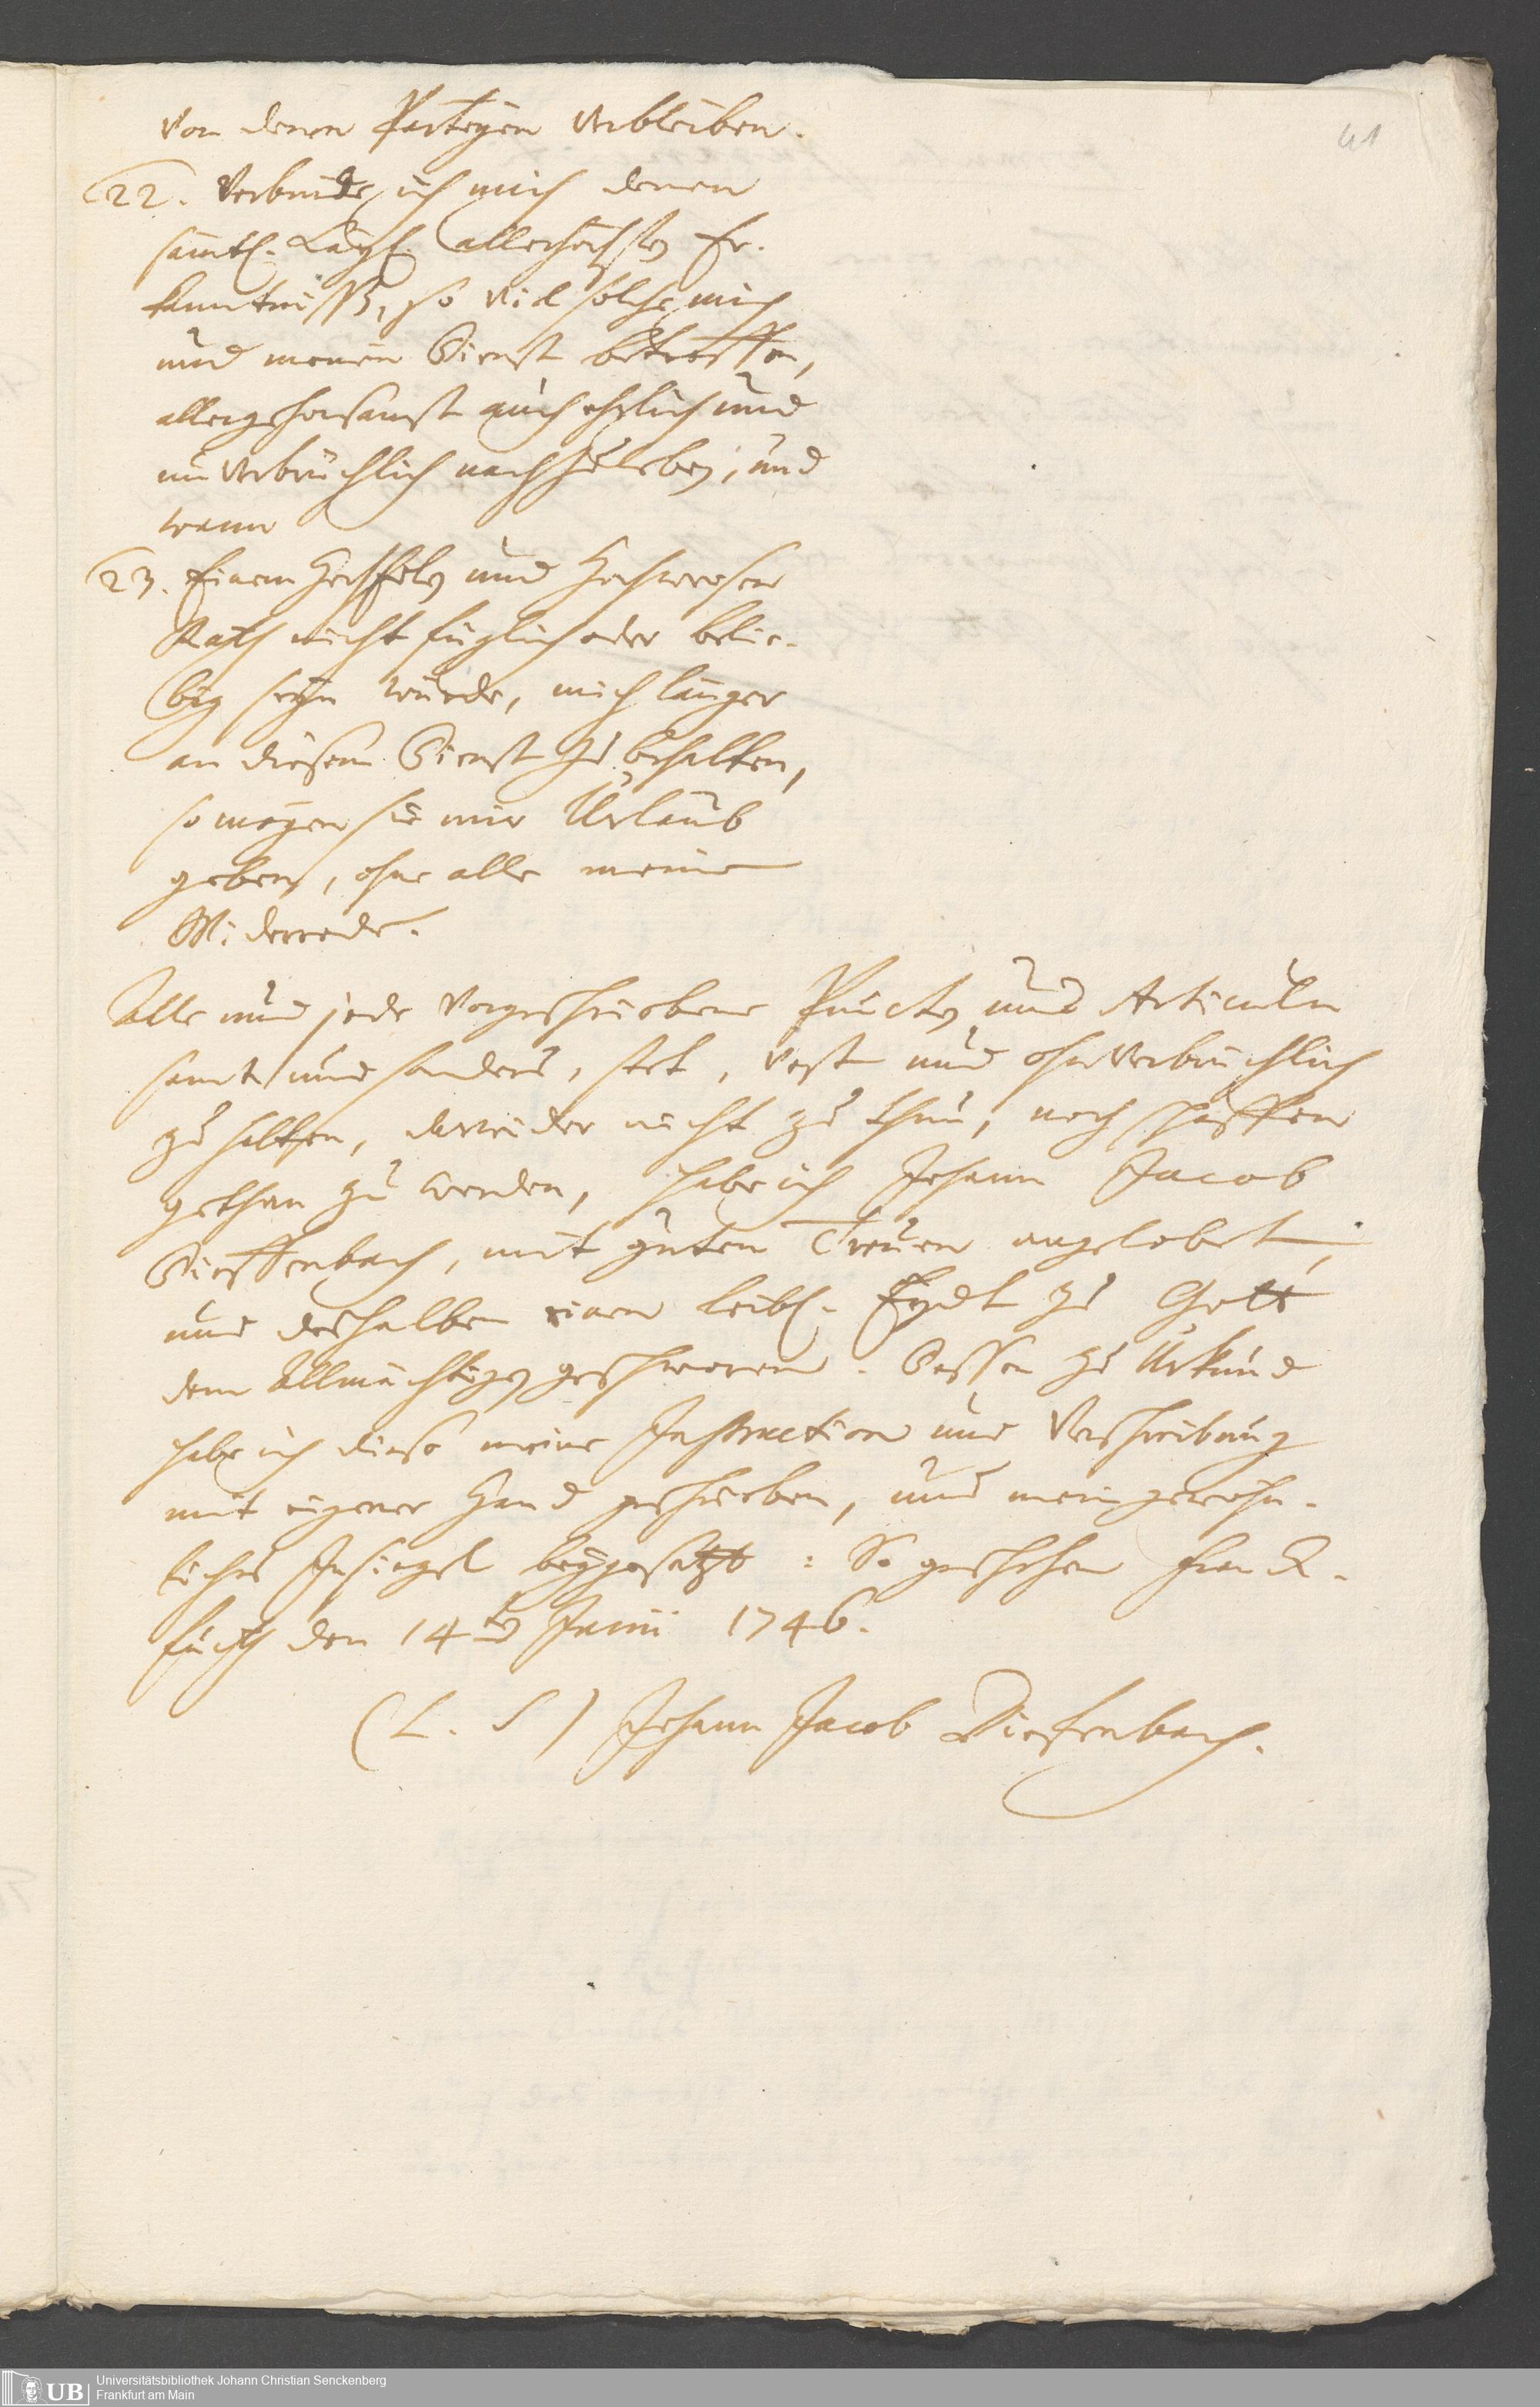 41
von denen Partheyen verbleiben.
22. Verbinde ich mich denen
sämtl. Kayßl. allerhöchsten Er-
kanntnißß, so viel solche mich
und meinen Dienst betreffen,
allergehorsamst auch ehrlich und
unverbrüchlich nachzuleben, und
wann
23. Einem HochEdlen und Hochweisen
Rath nicht füglich oder belie-
big seyn würde, mich länger
an diesem Dienst zu behalten,
so mögen sie mir Urlaub
geben, ohne alle meine
Widerrede.
Alle und jede vorgeschriebene Puncten und Articuln
samt und sonders, stet, vest und ohnverbrüchlich
zu halten, darwider nicht zu thun, noch schaffen
gethan zu werden, habe ich Johann Jacob
Dieffenbach, mit guten Treuen angelobet,
und deßhalben einen leibl. Eydt zu Gott
dem Allmächtigen geschworen. Dessen zu Urkund
habe ich diese meine Instruction und Verschreibung
mit eigener Hand geschrieben, und mein gewöhn-
liches Insiegel beygesetzt: So geschehen Franck-
furth den 14ten Junii 1746.
(L. S) Johann Jacob Diefenbach.
UB
Universitätsbibliothek Johann Christian Senckenberg
Frankfurt am Main